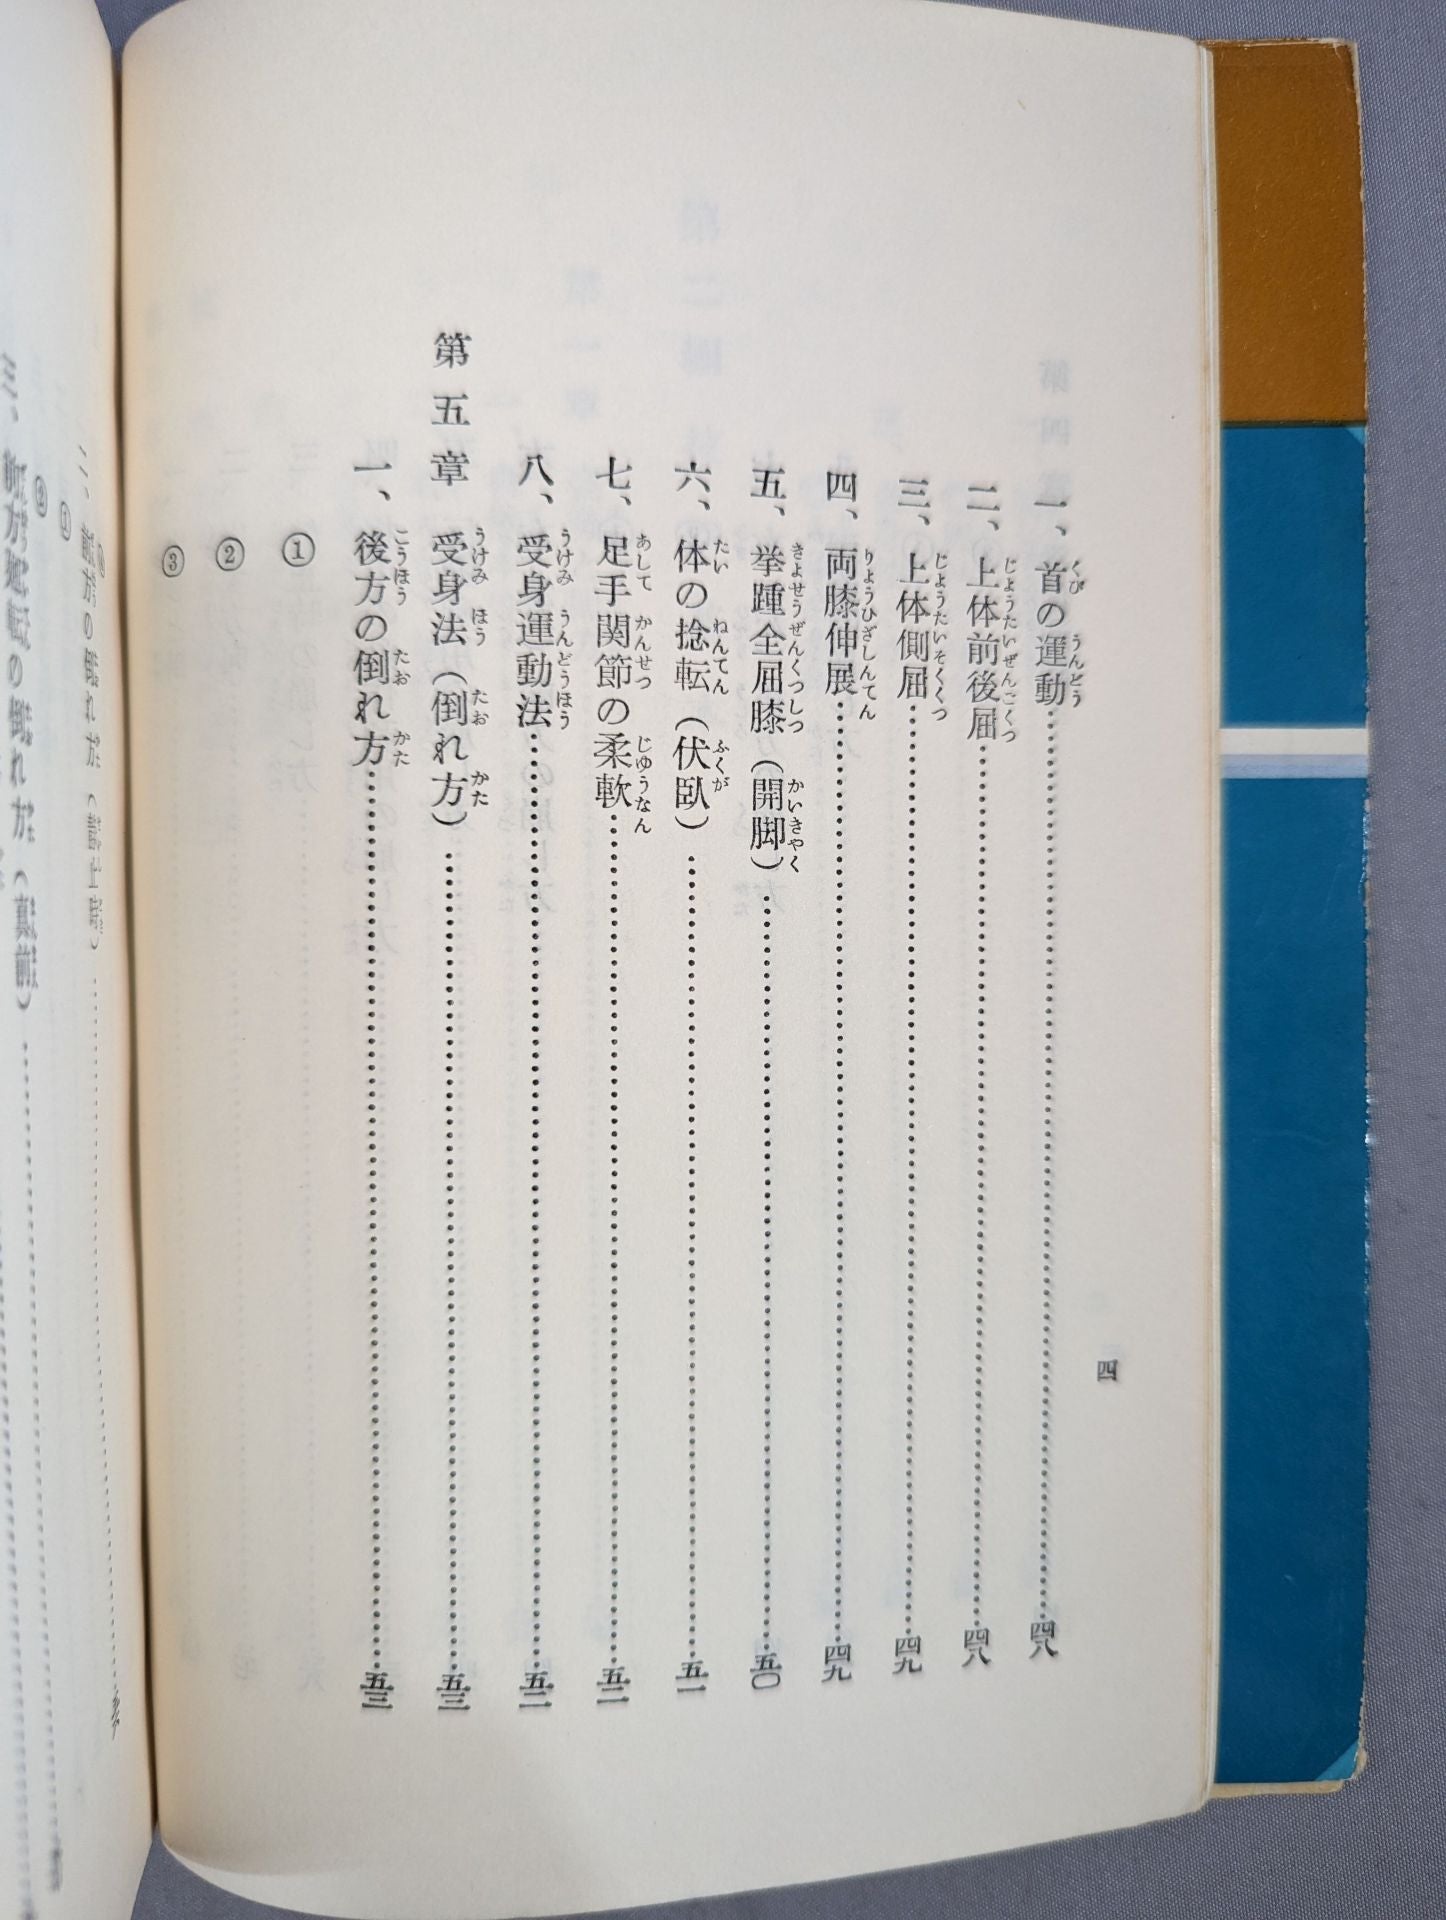 四
一、首の運動……四八
二、上体前後屈……四八
三、上体側屈……四九
四、両膝伸展……四九
五、挙踵全屈膝(開脚)……五〇
六、体の捻転(伏臥)……五一
七、足手関節の柔軟……五二
八、受身運動法……五二
第五章 受身法(倒れ方)……五三
一、後方の倒れ方……五三
①
②
③
①
②
の倒れ方(真前)